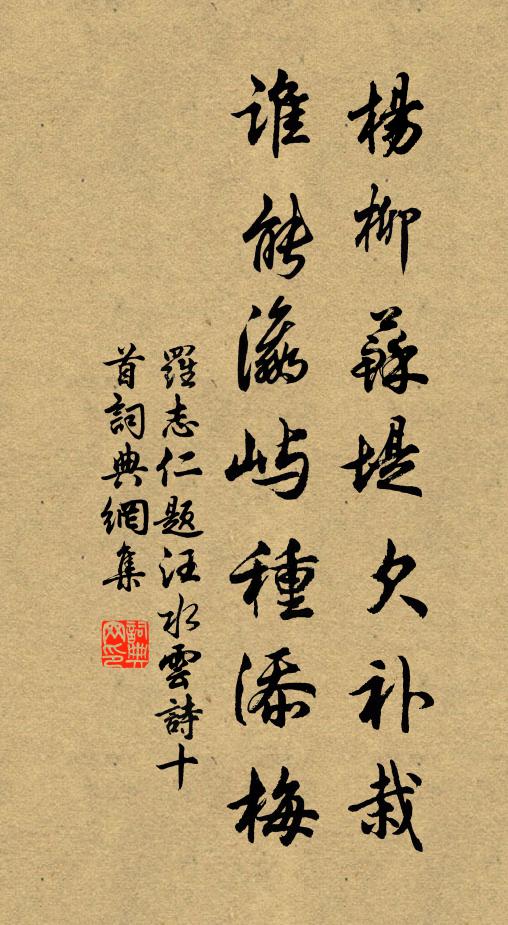 楊柳蘇堤欠补栽
谁能瀛屿種添梅
羅志仁题汪水雲詩十
首詞典網集
詞典网印